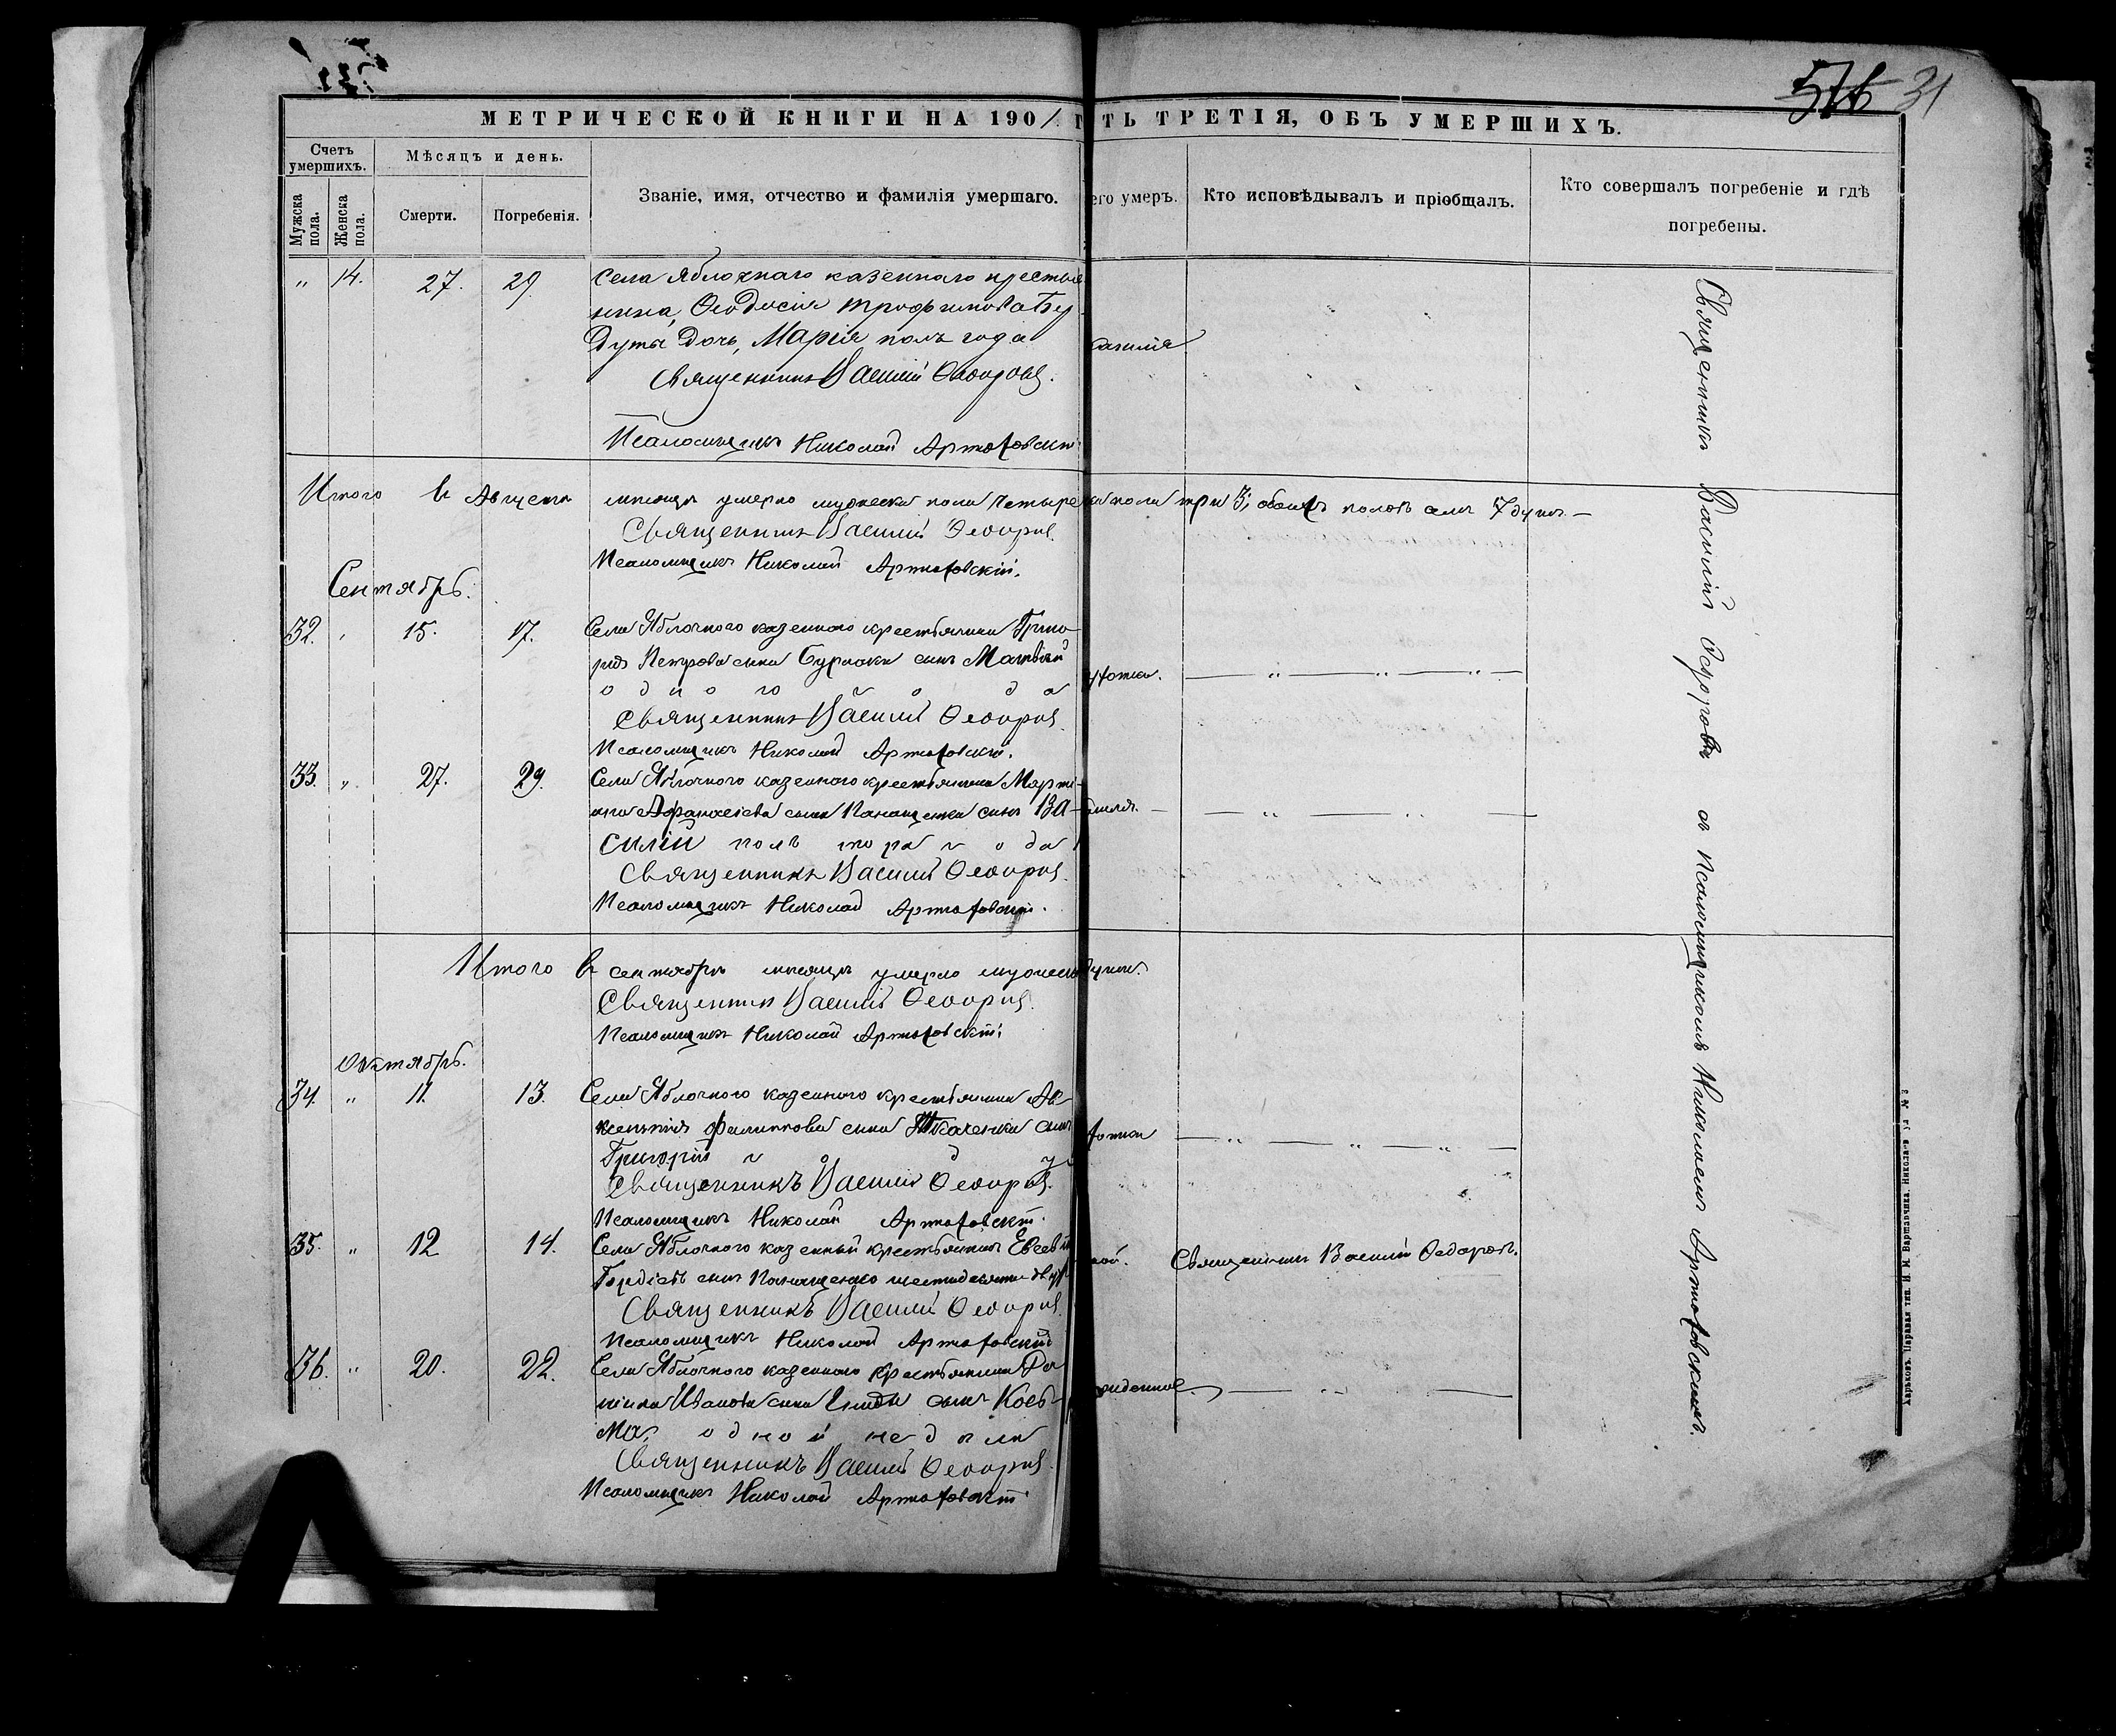 576 31
МЕТРИЧЕСКОЙ КНИГИ НА 1901
ТЬ ТРЕТІЯ, ОБЪ УМЕРШИХЪ.
Счетъ умершихъ.
Мѣсяцъ и день.
Мужска пола.
Женска пола.
Смерти.
Погребенія.
Званіе, имя, отчество и фамилія умершаго.
его умеръ.
Кто исповѣдывалъ и пріобщалъ.
Кто совершалъ погребеніе и гдѣ
погребены.
" 14. 27. 29. Села Яблочнаго казеннаго крестья
нина, Ѳеодосія Трофимова
дочь, Марія полъ года
Священникъ Василій Ѳеодоровъ.
Псаломщикъ Николай Артюховскій
Итого въ Августѣ мѣсяцѣ умерло мужеска пола четыре
пола три 3, обоихъ половъ семь 7 душъ. —
Священникъ Василій Ѳеодоровъ.
Псаломщикъ Николай Артюховскій.
Сентябрь.
32. " 15. 17. Села Яблочного казенного крестьянина Григо
рія Петрова сына Бурлаки сынъ Матвѣй
одного года
Священникъ Василій Ѳеодоровъ
Псаломщикъ Николай Артюховскій.
33. " 27. 29. Села Яблочного казенного крестьянина Марти-
на Афанасіева сына Панащенка сынъ Ва-
силій полъ тора года
Священникъ Василій Ѳеодоровъ.
Псаломщикъ Николай Артюховскій.
Итого въ сентябрѣ мѣсяцѣ умерло мужеск
Священникъ Василій Ѳеодоровъ.
Псаломщикъ Николай Артюховскій.
Октябрь.
34. " 11. 13. Села Яблочного казенного крестьянина Ав-
ксентія Филиппова сына Ткаченка сынъ
Григорій году
Священникъ Василій Ѳеодоровъ.
Псаломщикъ Николай Артюховскій.
35. " 12 14. Села Яблочного казенный крестьянинъ Евсевій
Гордіевъ сынъ Панащенко шестидесяти двух
Священникъ Василій Ѳедоровъ.
Священникъ Василій Ѳеодоровъ.
Псаломщикъ Николай Артюховскій
36. " 20. 22. Села Яблочного казенного крестьянина
Иванова сына сынъ Козь-
ма, одной недѣли
Священникъ Василій Ѳеодоровъ.
Псаломщикъ Николай Артюховскій
Священникъ Василій Ѳеодоровъ съ Псаломщикомъ Николаемъ Артюховскимъ.
Харьковъ. Паровая тип. И. М. Вартарчика. Николаев. ул. №